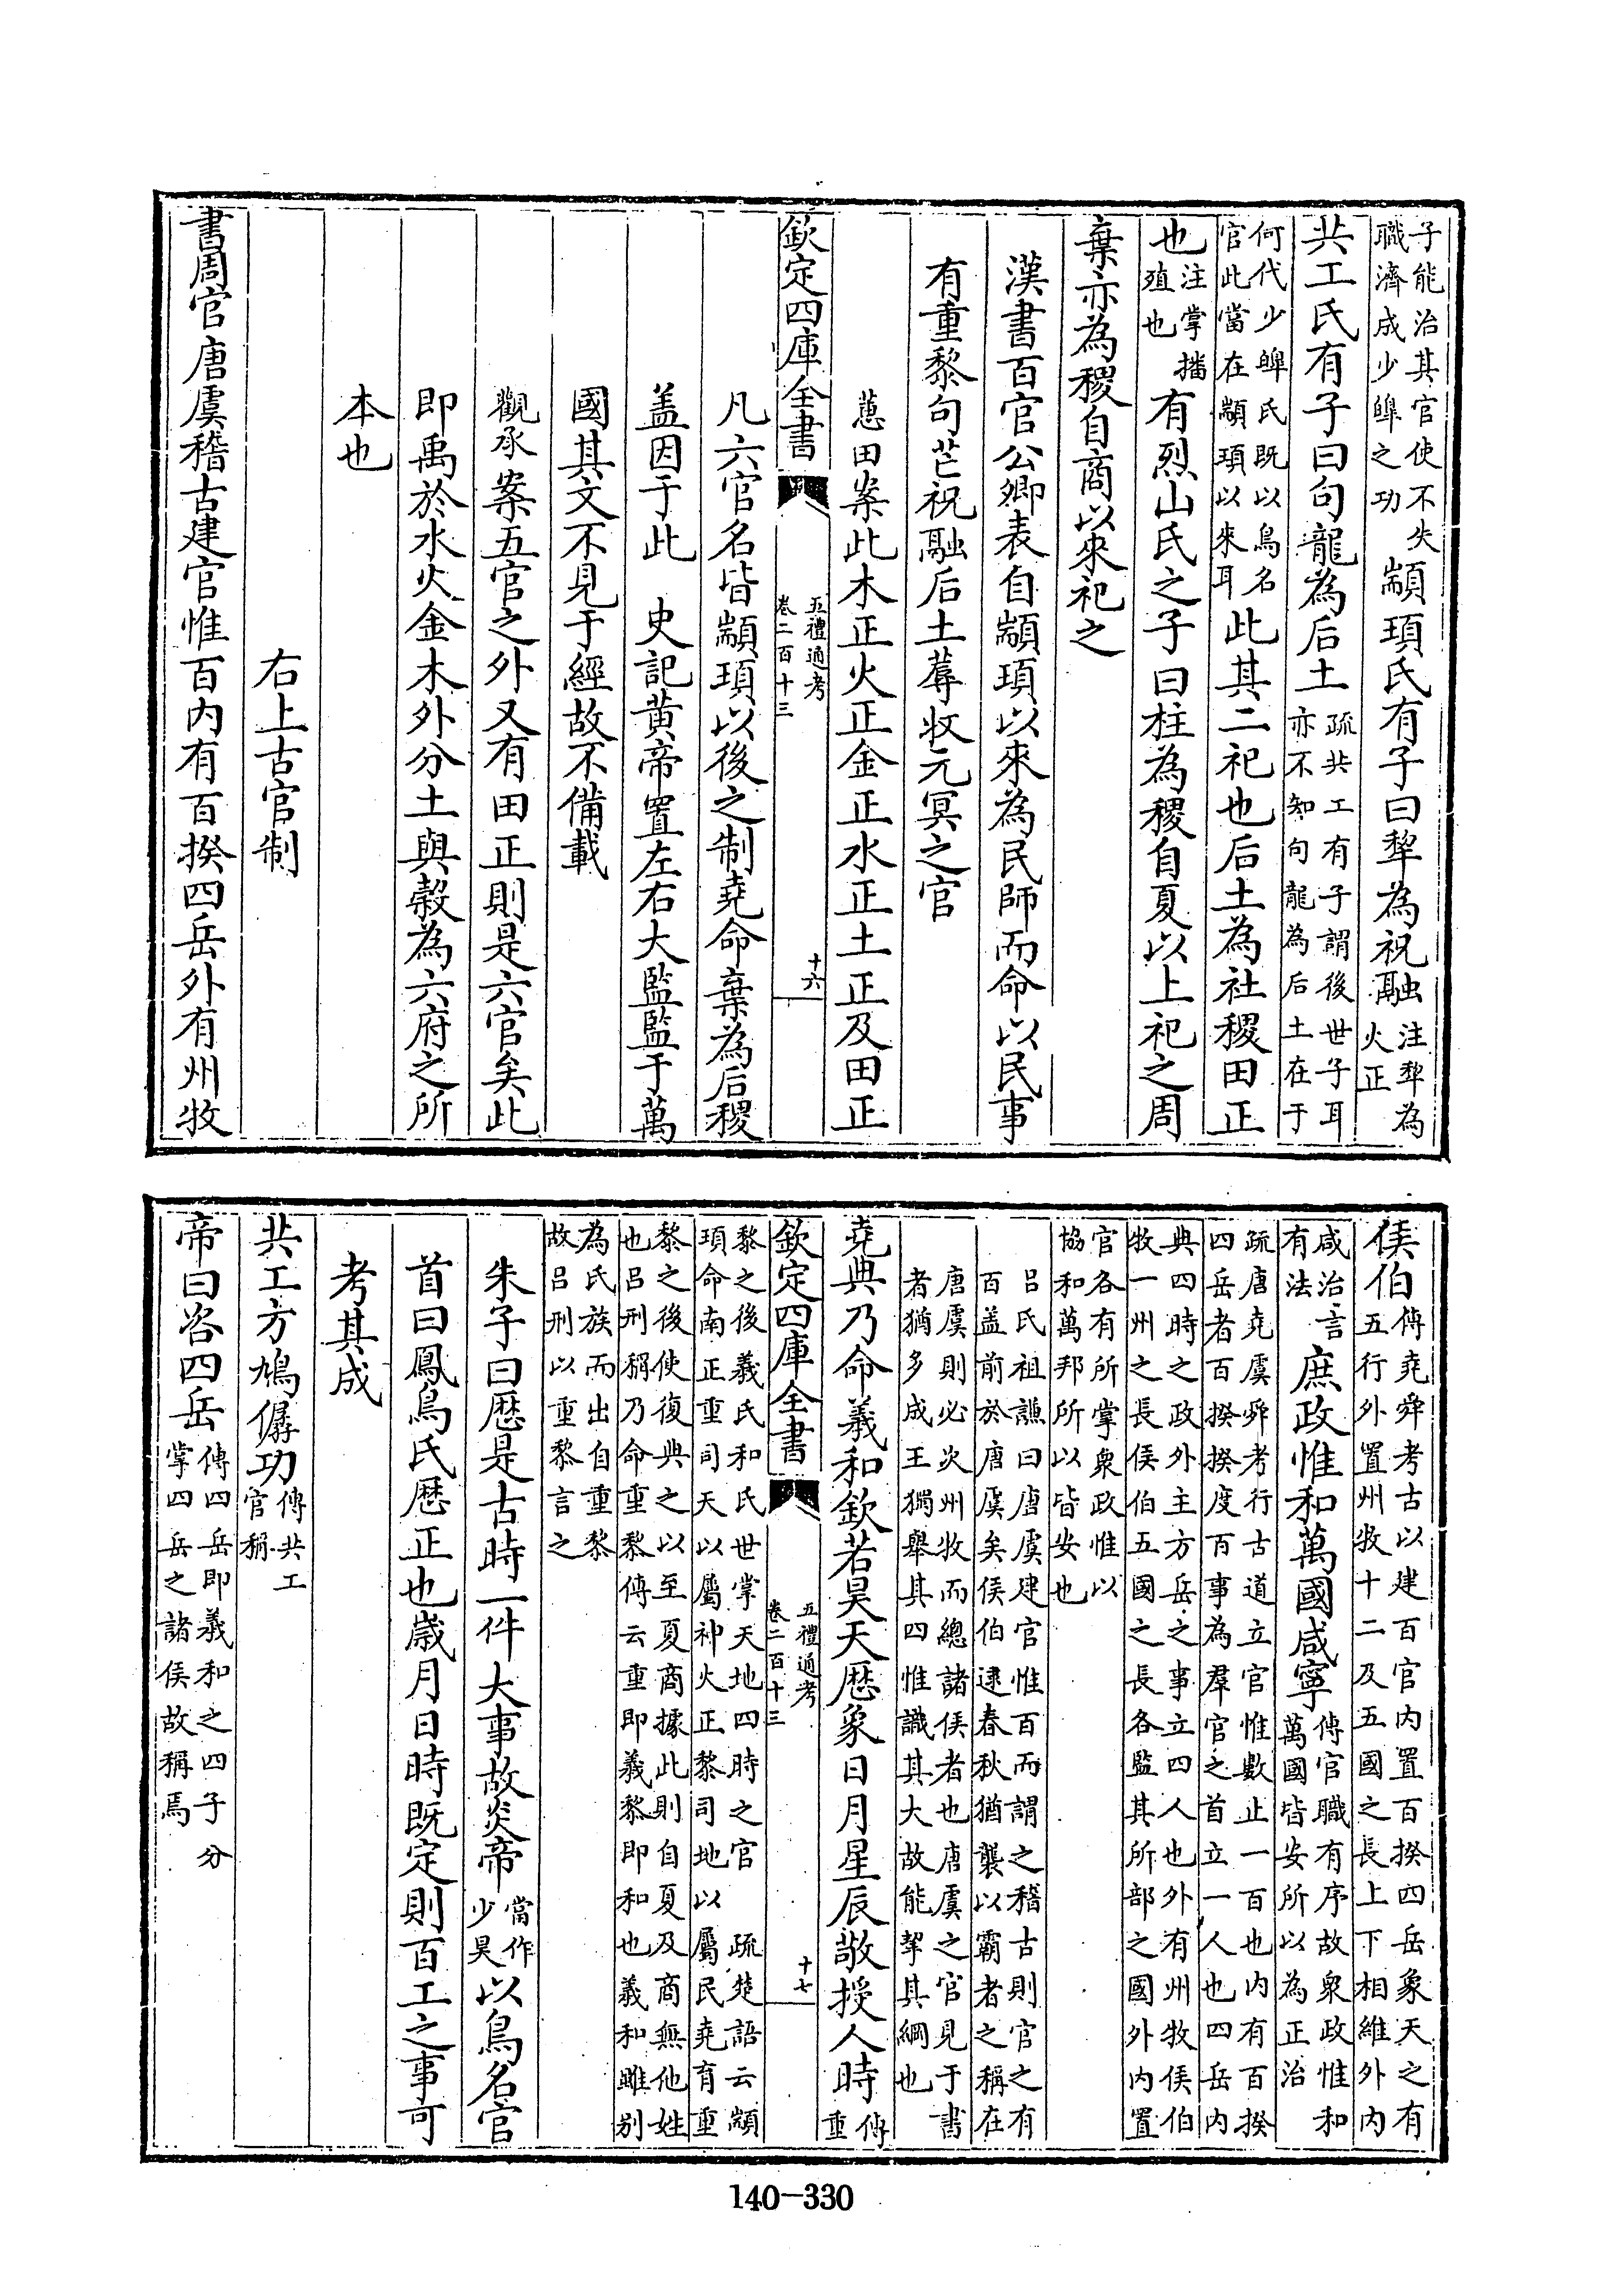 子能治其官使不失
職濟成少皥之功
顓頊氏有子曰犂為祝融
注犂為
火正
共工氏有子曰句龍為后土
疏共工有子謂後世子耳
亦不知句龍為后土在于
何代少皥氏既以鳥名
官此當在顓頊以來耳
此其二祀也后土為社稷田正
也
注掌播
殖也
有烈山氏之子曰柱為稷自夏以上祀之周
棄亦為稷自商以來祀之
漢書百官公卿表自顓頊以來為民師而命以民事
有重黎句芒祝融后土蓐收元冥之官
蕙田案此木正火正金正水正土正及田正
欽定四庫全書
五禮通考
卷二百十三
十六
凡六官名皆顓頊以後之制堯命棄為后稷
盖因于此 史記黄帝置左右大監監于萬
國其文不見于經故不備載
觀承案五官之外又有田正則是六官矣此
即禹於水火金木外分土與穀為六府之所
本也
右上古官制
書周官唐虞稽古建官惟百内有百揆四岳外有州牧
侯伯
傳堯舜考古以建百官内置百揆四岳象天之有
五行外置州牧十二及五國之長上下相維外内
咸治言
有法
庶政惟和萬國咸寧
傳官職有序故衆政惟和
萬國皆安所以為正治
疏唐堯虞舜考行古道立官惟數止一百也内有百揆
四岳者百揆揆度百事為羣官之首立一人也四岳内
典四時之政外主方岳之事立四人也外有州牧侯伯
牧一州之長侯伯五國之長各監其所部之國外内置
官各有所掌衆政惟以
協和萬邦所以皆安也
吕氏祖謙曰唐虞建官惟百而謂之稽古則官之有
百盖前於唐虞矣侯伯逮春秋猶襲以霸者之稱在
唐虞則必次州牧而總諸侯者也唐虞之官見于書
者猶多成王獨舉其四惟識其大故能挈其綱也
堯典乃命羲和欽若昊天厯象日月星辰敬授人時
傳
重
欽定四庫全書
五禮通考
卷二百十三
十七
黎之後羲氏和氏世掌天地四時之官 疏楚語云顓
頊命南正重司天以屬神火正黎司地以屬民堯育重
黎之後使復典之以至夏商據此則自夏及商無他姓
也吕刑稱乃命重黎傳云重即羲黎即和也羲和雖别
為氏族而出自重黎
故吕刑以重黎言之
朱子曰厯是古時一件大事故炎帝
當作
少昊
以鳥名官
首曰鳳鳥氏厯正也歲月日時既定則百工之事可
考其成
共工方鳩僝功
傳共工
官稱
帝曰咨四岳
傳四岳即羲和之四子分
掌四岳之諸侯故稱焉
140-330